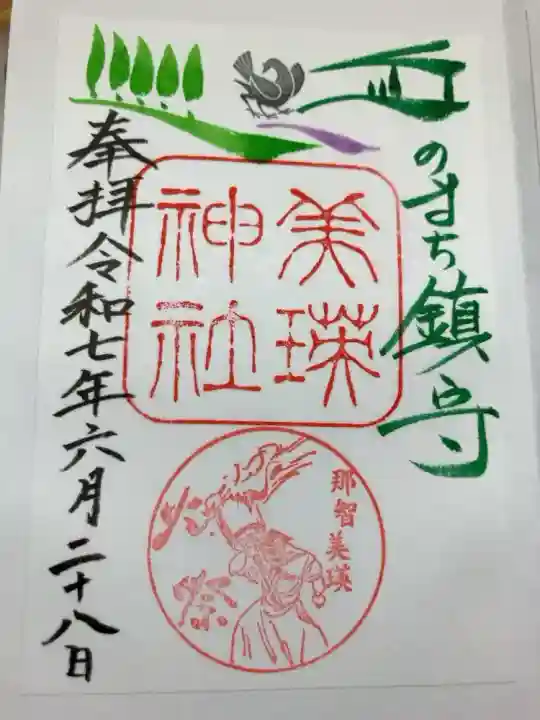 丘のまち鎮守
美瑛
神社
奉拝令和七年六月二十八日
那智美瑛
火祭